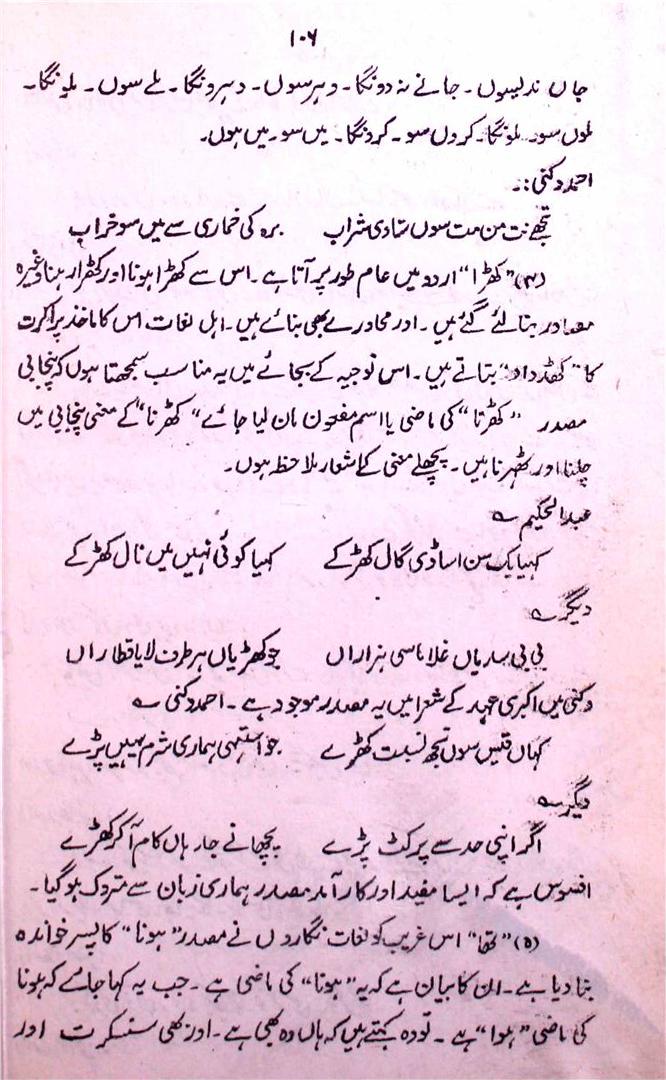 ۱۰۶
جاں ندلیسوں۔ جانے نہ دونگا۔ دہرسوں۔ دہرونگا۔ ملے سوں۔ ملونگا۔
ملوں سو۔ ملونگا۔ کروں سو۔ کرونگا۔ میں سو۔ میں ہوں۔
احمد دکنی:۔
تجھے نت من مت سوں شادی شراب برہ کی خماری سے میں سو خراب
(۴) "کھڑا" اردو میں عام طور پر آتا ہے۔ اس سے کھڑا ہونا اور کھڑا رہنا وغیرہ
مصادر بنا لئے گئے ہیں۔ اور محاورے بھی بنائے ہیں۔ اہل لغات اس کا ماخذ پراکرت
کا "کھڈدا" بتاتے ہیں۔ اس توجیہ کے بجائے میں یہ مناسب سمجھتا ہوں کہ پنجابی
مصدر "کھڑنا" کی ماضی یا اسم مفعول مان لیا جائے "کھڑنا" کے معنی پنجابی میں
چلنا اور ٹھہرنا ہیں۔ پچھلے معنی کے اشعار ملاحظہ ہوں۔
عبدالحکیم ؎
کہیا یک سن اساڈی گال کھڑ کے کہیا کوئی نہیں میں نال کھڑ کے
دیگر ؎
بی بی سدیاں غلاماسی ہزاراں جو کھڑیاں ہر طرف لایا قطاراں
دکنی میں اکبری عہد کے شعرا میں یہ مصدر موجود ہے۔ احمد دکنی ؎
کہاں قیس سوں تجھ نسبت کھڑے جو استہی ہماری شرم نہیں پڑے
دیگر ؎
اگر اپنی حد سے پرکٹ پڑے پچھانے جا رہاں کام آ کر کھڑے
افسوس ہے کہ ایسا مفید اور کارآمد مصدر ہماری زبان سے متروک ہو گیا۔
(۵) "تھا" اس غریب کو لغات نگاروں نے مصدر "ہونا" کا پسر خواندہ
بتا دیا ہے۔ ان کا بیان ہے کہ یہ "ہونا" کی ماضی ہے۔ جب یہ کہا جائے کہ ہونا
کی ماضی "ہوا" ہے۔ تو وہ کہتے ہیں کہ ہاں وہ بھی ہے۔ اور بھی سنسکرت اور